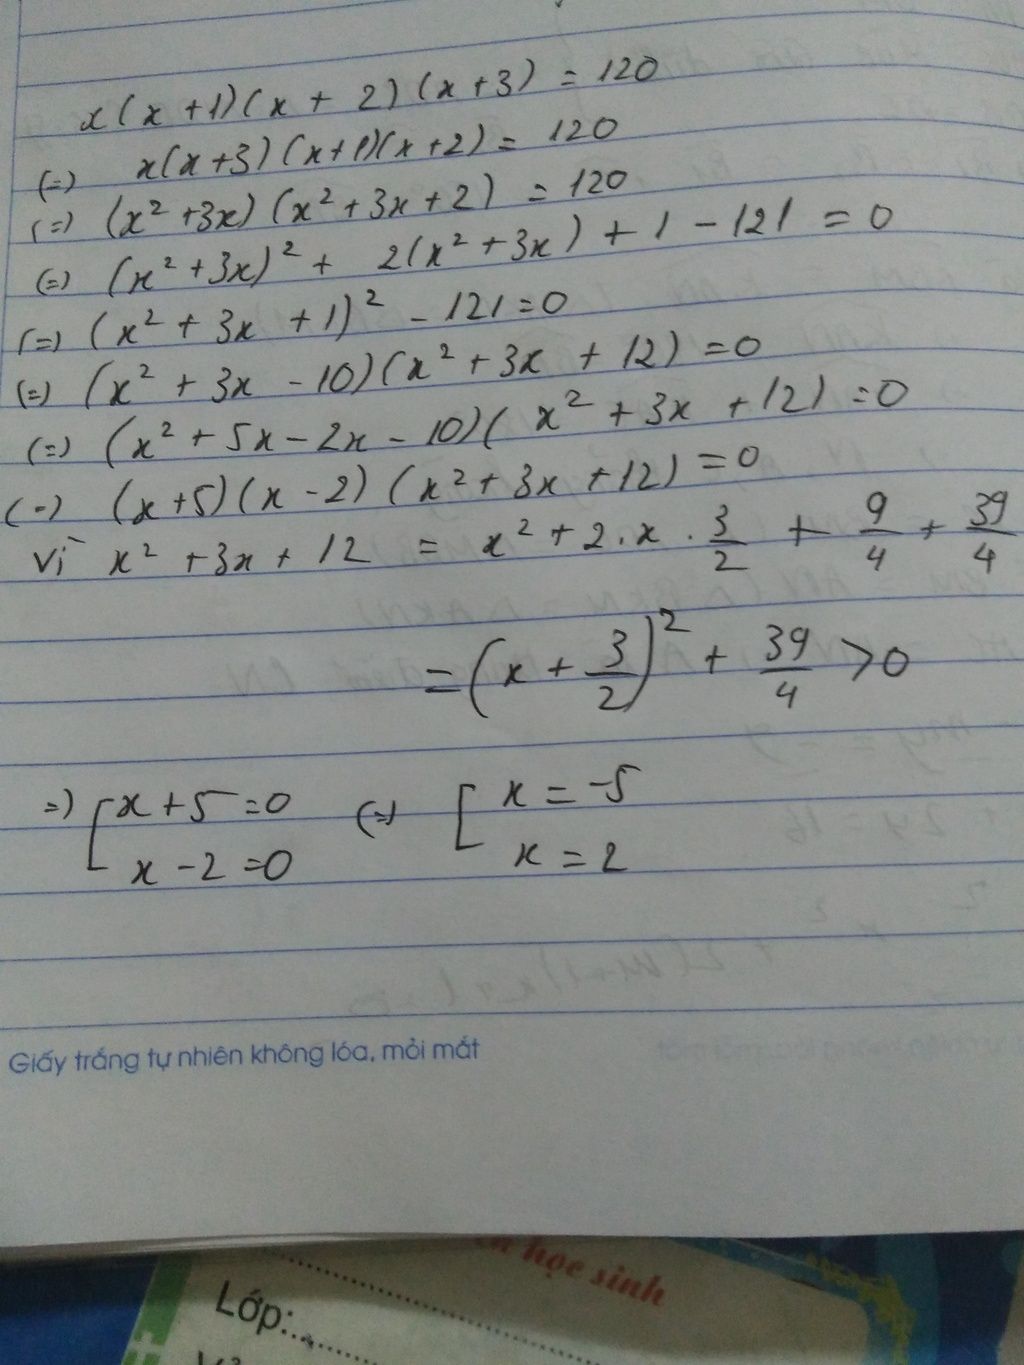 x(x+1)(x+2)(x+3) = 120
(=) x(x+3)(x+1)(x+2) = 120
(=) (x²+3x)(x²+3x+2) = 120
(=) (x²+3x)² + 2(x²+3x) + 1 - 121 = 0
(=) (x²+3x+1)² - 121 = 0
(=) (x²+3x-10)(x²+3x+12) = 0
(=) (x²+5x-2x-10)(x²+3x+12) = 0
(=) (x+5)(x-2)(x²+3x+12) = 0
Vì x²+3x+12 = x²+2.x.3/2 + 9/4 + 39/4
= (x + 3/2)² + 39/4 > 0
=) [ x+5=0 (=) [ x = -5
x-2=0 x = 2
Giấy trắng tự nhiên không lóa, mỏi mắt
học sinh
Lớp: